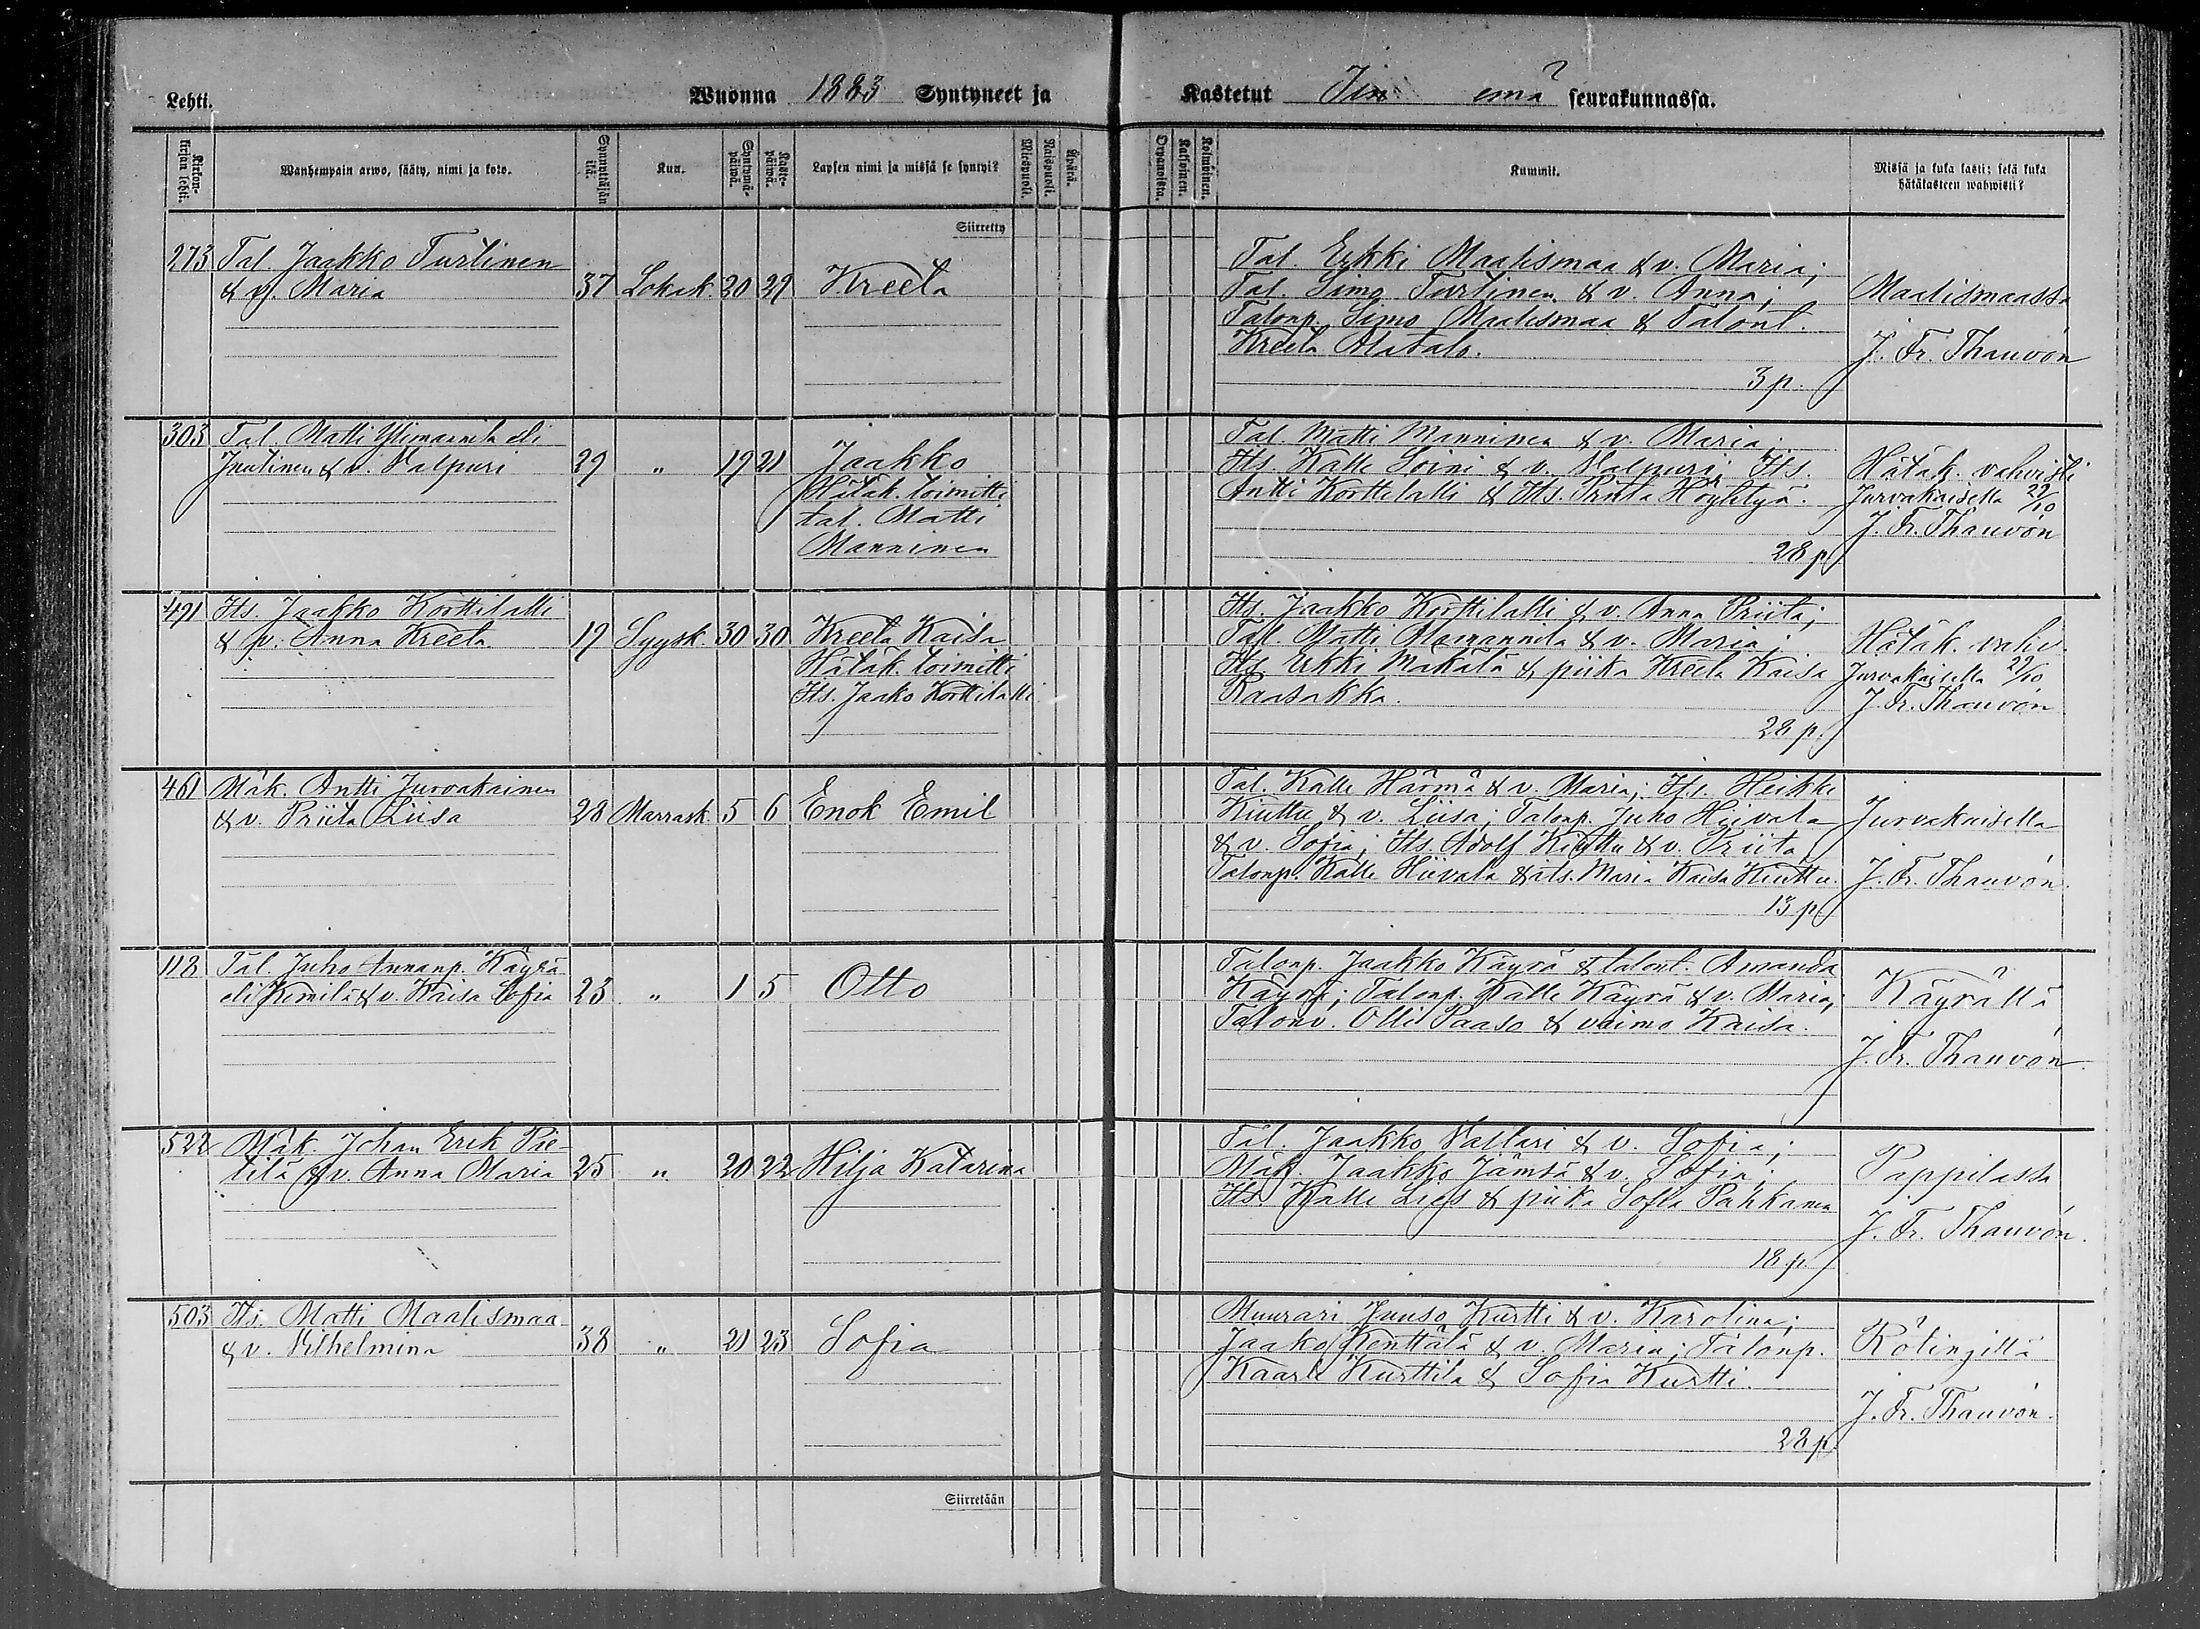 Lehti.
Wuonna 1883 Syntyneet ja Kastetut Iin emä seurakunnassa.
Kirkon-kirjan lehti.
Wanhempain arwo, sääty, nimi ja koto.
Synnyttäjän ikä.
Kuu.
Syntymä-päiwä.
Kaste-päiwä.
Lapsen nimi ja missä se syntyi?
Miespuoli.
Naispuoli.
Äpärä.
Orpanoista.
Kaksoinen.
Kolminen.
Kummit.
Missä ja kuka kasti; sekä kuka
hätäkasteen wahwisti?
Siirretty
273 Tal. Jaakko Turtinen
& v. Maria 37 Lokak. 20 29 Kreeta
Tal. Erkki Maalismaa & v. Maria;
Tal. Simo Turtinen & v. Anna;
Talonp. Simo Maalismaa & Talont.
Kreeta Alatalo.
3 p.
Maalismaassa
J. Fr. Thauvón
303 Tal. Matti Ylimannila eli
Juutinen & v. Valpuri 29 " 19 21 Jaakko
Hätäk. toimitti
tal. Matti
Manninen
Tal. Matti Manninen & v. Maria;
Its. Kalle Soini & v. Valpuri; Its.
Antti Korttilalli & Its. Priita Höyhtyä.
28 p
Hätäk. vahvisti
Jurvakaisella 29/10
J. Fr. Thauvón
491 Its. Jaakko Korttilalli
& v. Anna Kreeta 19 Syysk. 30 30 Kreeta Kaisa
Hätäk. toimitti
Its. Jaako Korttilalli
Its. Jaakko Korttilalli & v. Anna Priita;
Tal. Matti Alamannila & v. Maria;
Its. Erkki Mäkälä & piika Kreeta Kaisa
Raasakka.
28 p.
Hätäk. vahv.
Jurvakaisella 29/10
J. Fr. Thauvón
461 Mäk. Antti Jurvakainen
& v. Priita Liisa 28 Marrask. 5 6 Enok Emil
Tal. Kalle Härmä & v. Maria; Its. Heikki
Kiuttu & v. Liisa; Talonp. Juho Hiivala
& v. Sofia; Its. Adolf Kiuttu & v. Priita
Talonp. Kalle Hiivala & its. Maria Kaisa Kiuttu.
13 p.
Jurvakaisella
J. Fr. Thauvón.
118 Tal. Juho Annanp. Käyrä
eli Kemilä & v. Kaisa Sofia 23 " 1 5 Otto
Talonp. Jaakko Käyrä & talont. Amanda
Käyrä; Talonp. Kalle Käyrä & v. Maria;
Talonv. Olli Paaso & vaimo Kaisa.
Käyrällä
J. Fr. Thauvón.
522 Mäk. Johan Erik Pie-
tilä & v. Anna Maria 25 " 20 22 Hilja Katarina
Tal. Jaakko Vallari & v. Sofia;
Mäk. Jaakko Jämsä & v. Sofia;
Its. Kalle & piika Sofia Pahkanen
18 p.
Pappilassa
J. Fr. Thauvón.
503 Its. Matti Maalismaa
& v. Vilhelmina 38 " 21 23 Sofia
Muurari Juuso Kurtti & v. Karolina;
Jaako Kenttälä & v. Maria; Talonp.
Kaarle Kurttila & Sofia Kurtti.
22 p.
Rötingillä
J. Fr. Thauvón.
Siirretään